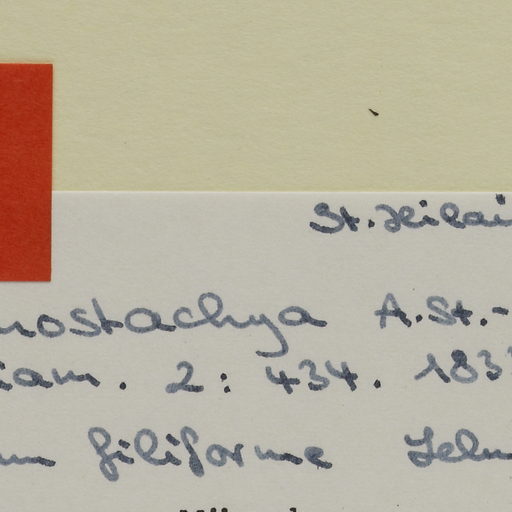 St. Hilai
nostachya A. St.-
iam. 2: 434. 183
um filiforme